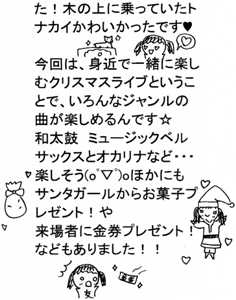 た！木の上に乗っていたト
ナカイかわいかったです♥
今回は、身近で一緒に楽し
むクリスマスライブというこ
とで、いろんなジャンルの
曲が楽しめるんです☆
和太鼓　ミュージックベル
サックスとオカリナなど・・・
楽しそう(о´∇`)οほかにも
サンタガールからお菓子プ
レゼント！や
来場者に金券プレゼント！
などもありました！！